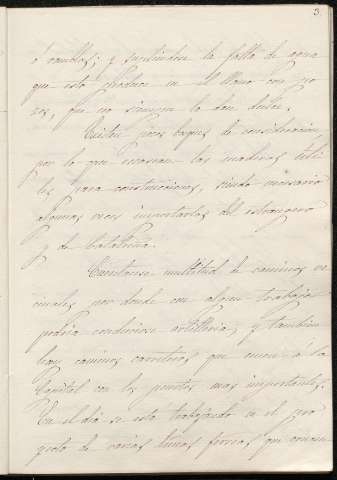 3.
ó ramblas; y sustituíen la falta de agua
que esto produce en el llano con po
zos, que no siempre la dan dulce.
Existen pocos bosques de consideracion
por lo que escasean las maderas úti
les para construcciones, siendo necesario
algunas veces importarlas del estrangero
y de Cataluña.
Cuentanse multitud de caminos ve
cinales por donde con algun trabajo
podria conducirse artilleria, y tambien
hay caminos carreteros que unen á la
Capital con los puntos mas importantes.
En el dia se está trabajando en el pro
yecto de varias lineas ferreas que